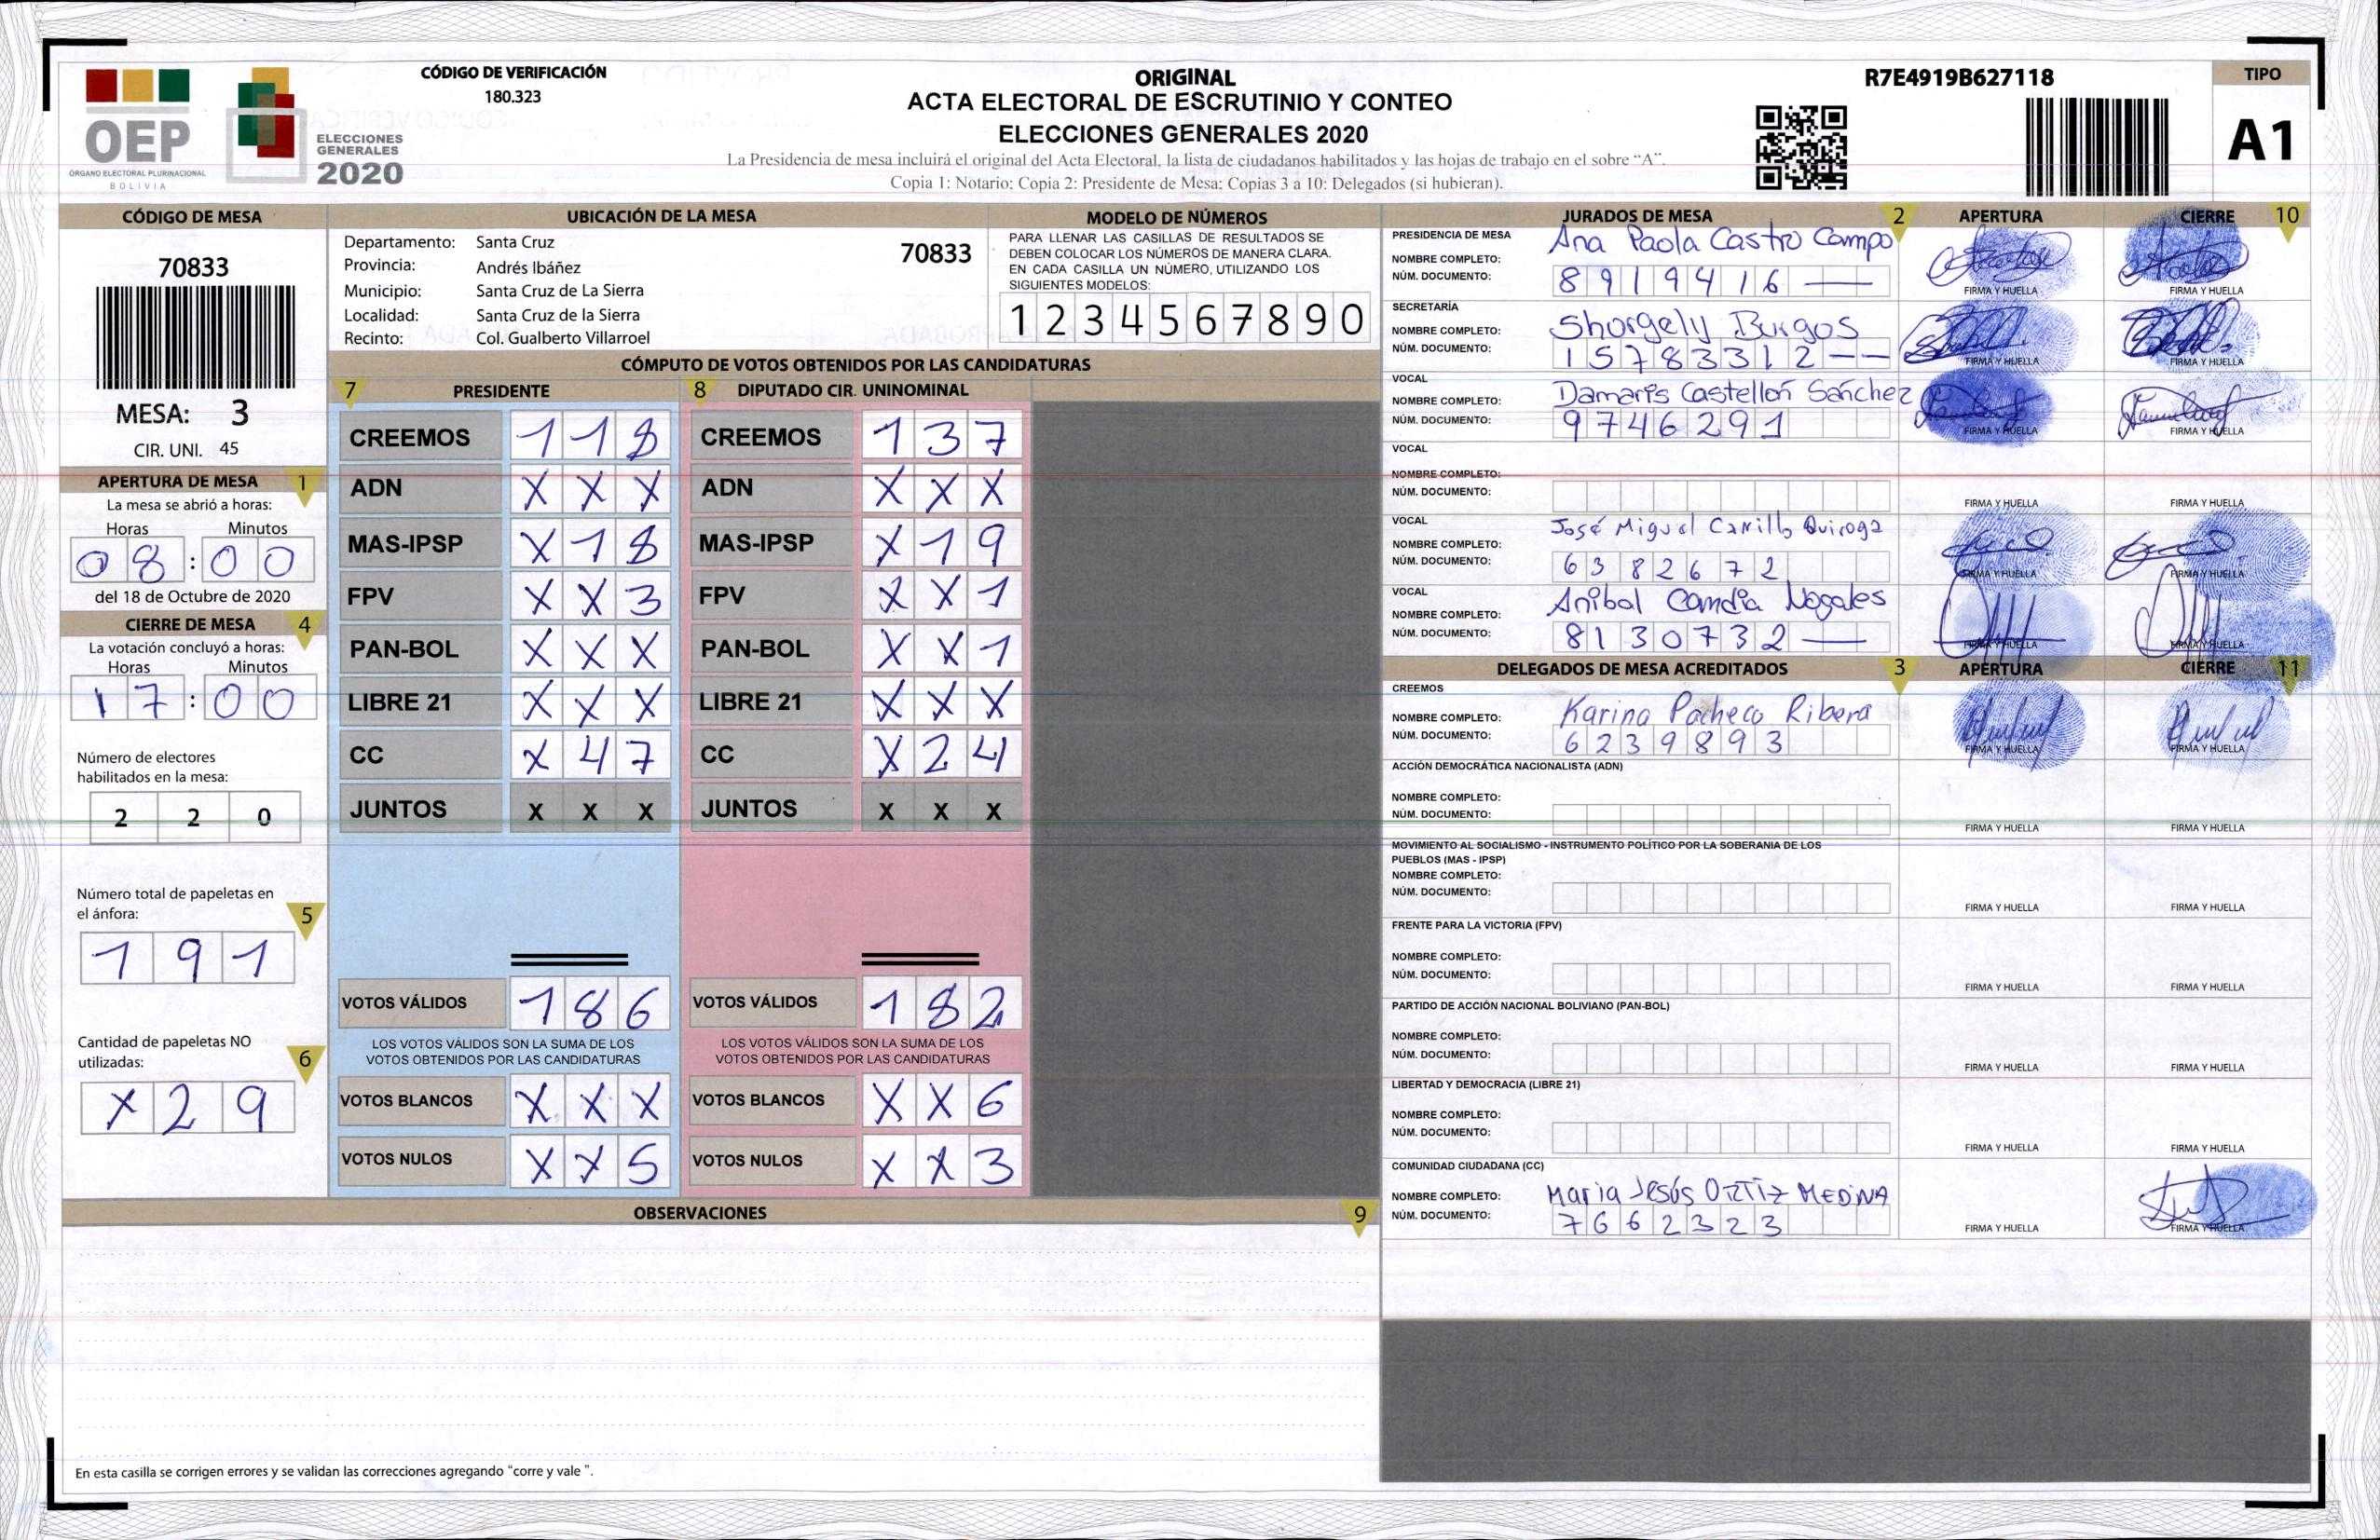 CÓDIGO DE VERIFICACIÓN
180.323
OEP
ÓRGANO ELECTORAL PLURINACIONAL
BOLIVIA
ELECCIONES
GENERALES
2020
ORIGINAL
ACTA ELECTORAL DE ESCRUTINIO Y CONTEO
ELECCIONES GENERALES 2020
La Presidencia de mesa incluirá el original del Acta Electoral, la lista de ciudadanos habilitados y las hojas de trabajo en el sobre “A”.
Copia 1: Notario; Copia 2: Presidente de Mesa; Copias 3 a 10: Delegados (si hubieran).
R7E4919B627118
TIPO
A1
CÓDIGO DE MESA
70833
MESA: 3
CIR. UNI. 45
APERTURA DE MESA 1
La mesa se abrió a horas:
Horas Minutos
08:00
del 18 de Octubre de 2020
CIERRE DE MESA 4
La votación concluyó a horas:
Horas Minutos
17:00
Número de electores
habilitados en la mesa:
2 2 0
Número total de papeletas en
el ánfora: 5
1 9 1
Cantidad de papeletas NO
utilizadas: 6
X 2 9
UBICACIÓN DE LA MESA
Departamento: Santa Cruz 70833
Provincia: Andrés Ibáñez
Municipio: Santa Cruz de La Sierra
Localidad: Santa Cruz de la Sierra
Recinto: Col. Gualberto Villarroel
MODELO DE NÚMEROS
PARA LLENAR LAS CASILLAS DE RESULTADOS SE
DEBEN COLOCAR LOS NÚMEROS DE MANERA CLARA.
EN CADA CASILLA UN NÚMERO, UTILIZANDO LOS
SIGUIENTES MODELOS:
1 2 3 4 5 6 7 8 9 0
CÓMPUTO DE VOTOS OBTENIDOS POR LAS CANDIDATURAS
7 PRESIDENTE 8 DIPUTADO CIR. UNINOMINAL
CREEMOS 1 1 8 CREEMOS 1 3 7
ADN X X X ADN X X X
MAS-IPSP X 1 8 MAS-IPSP X 1 9
FPV X X 3 FPV X X 1
PAN-BOL X X X PAN-BOL X X 1
LIBRE 21 X X X LIBRE 21 X X X
CC X 4 7 CC X 2 4
JUNTOS X X X JUNTOS X X X
VOTOS VÁLIDOS 1 8 6 VOTOS VÁLIDOS 1 8 2
LOS VOTOS VÁLIDOS SON LA SUMA DE LOS LOS VOTOS VÁLIDOS SON LA SUMA DE LOS
VOTOS OBTENIDOS POR LAS CANDIDATURAS VOTOS OBTENIDOS POR LAS CANDIDATURAS
VOTOS BLANCOS X X X VOTOS BLANCOS X X 6
VOTOS NULOS X X 5 VOTOS NULOS X X 3
OBSERVACIONES 9
En esta casilla se corrigen errores y se validan las correcciones agregando “corre y vale ”.
JURADOS DE MESA 2 APERTURA CIERRE 10
PRESIDENCIA DE MESA
NOMBRE COMPLETO: Ana Paola Castro Campo
NÚM. DOCUMENTO: 8919416 —
FIRMA Y HUELLA FIRMA Y HUELLA
SECRETARÍA
NOMBRE COMPLETO: Shorgely Burgos
NÚM. DOCUMENTO: 15783312 — —
FIRMA Y HUELLA FIRMA Y HUELLA
VOCAL
NOMBRE COMPLETO: Damaris Castellón Sánchez
NÚM. DOCUMENTO: 9746291
FIRMA Y HUELLA FIRMA Y HUELLA
VOCAL
NOMBRE COMPLETO:
NÚM. DOCUMENTO:
FIRMA Y HUELLA FIRMA Y HUELLA
VOCAL
NOMBRE COMPLETO: José Miguel Carrillo Quiroga
NÚM. DOCUMENTO: 6382672
FIRMA Y HUELLA FIRMA Y HUELLA
VOCAL
NOMBRE COMPLETO: Anibal Candia Nogales
NÚM. DOCUMENTO: 8130732 —
FIRMA Y HUELLA FIRMA Y HUELLA
DELEGADOS DE MESA ACREDITADOS 3 APERTURA CIERRE 11
CREEMOS
NOMBRE COMPLETO: Karina Pacheco Ribera
NÚM. DOCUMENTO: 6239893
FIRMA Y HUELLA FIRMA Y HUELLA
ACCIÓN DEMOCRÁTICA NACIONALISTA (ADN)
NOMBRE COMPLETO:
NÚM. DOCUMENTO:
FIRMA Y HUELLA FIRMA Y HUELLA
MOVIMIENTO AL SOCIALISMO - INSTRUMENTO POLÍTICO POR LA SOBERANIA DE LOS
PUEBLOS (MAS - IPSP)
NOMBRE COMPLETO:
NÚM. DOCUMENTO:
FIRMA Y HUELLA FIRMA Y HUELLA
FRENTE PARA LA VICTORIA (FPV)
NOMBRE COMPLETO:
NÚM. DOCUMENTO:
FIRMA Y HUELLA FIRMA Y HUELLA
PARTIDO DE ACCIÓN NACIONAL BOLIVIANO (PAN-BOL)
NOMBRE COMPLETO:
NÚM. DOCUMENTO:
FIRMA Y HUELLA FIRMA Y HUELLA
LIBERTAD Y DEMOCRACIA (LIBRE 21)
NOMBRE COMPLETO:
NÚM. DOCUMENTO:
FIRMA Y HUELLA FIRMA Y HUELLA
COMUNIDAD CIUDADANA (CC)
NOMBRE COMPLETO: Maria Jesús ORTIZ MEDINA
NÚM. DOCUMENTO: 7662323
FIRMA Y HUELLA FIRMA Y HUELLA